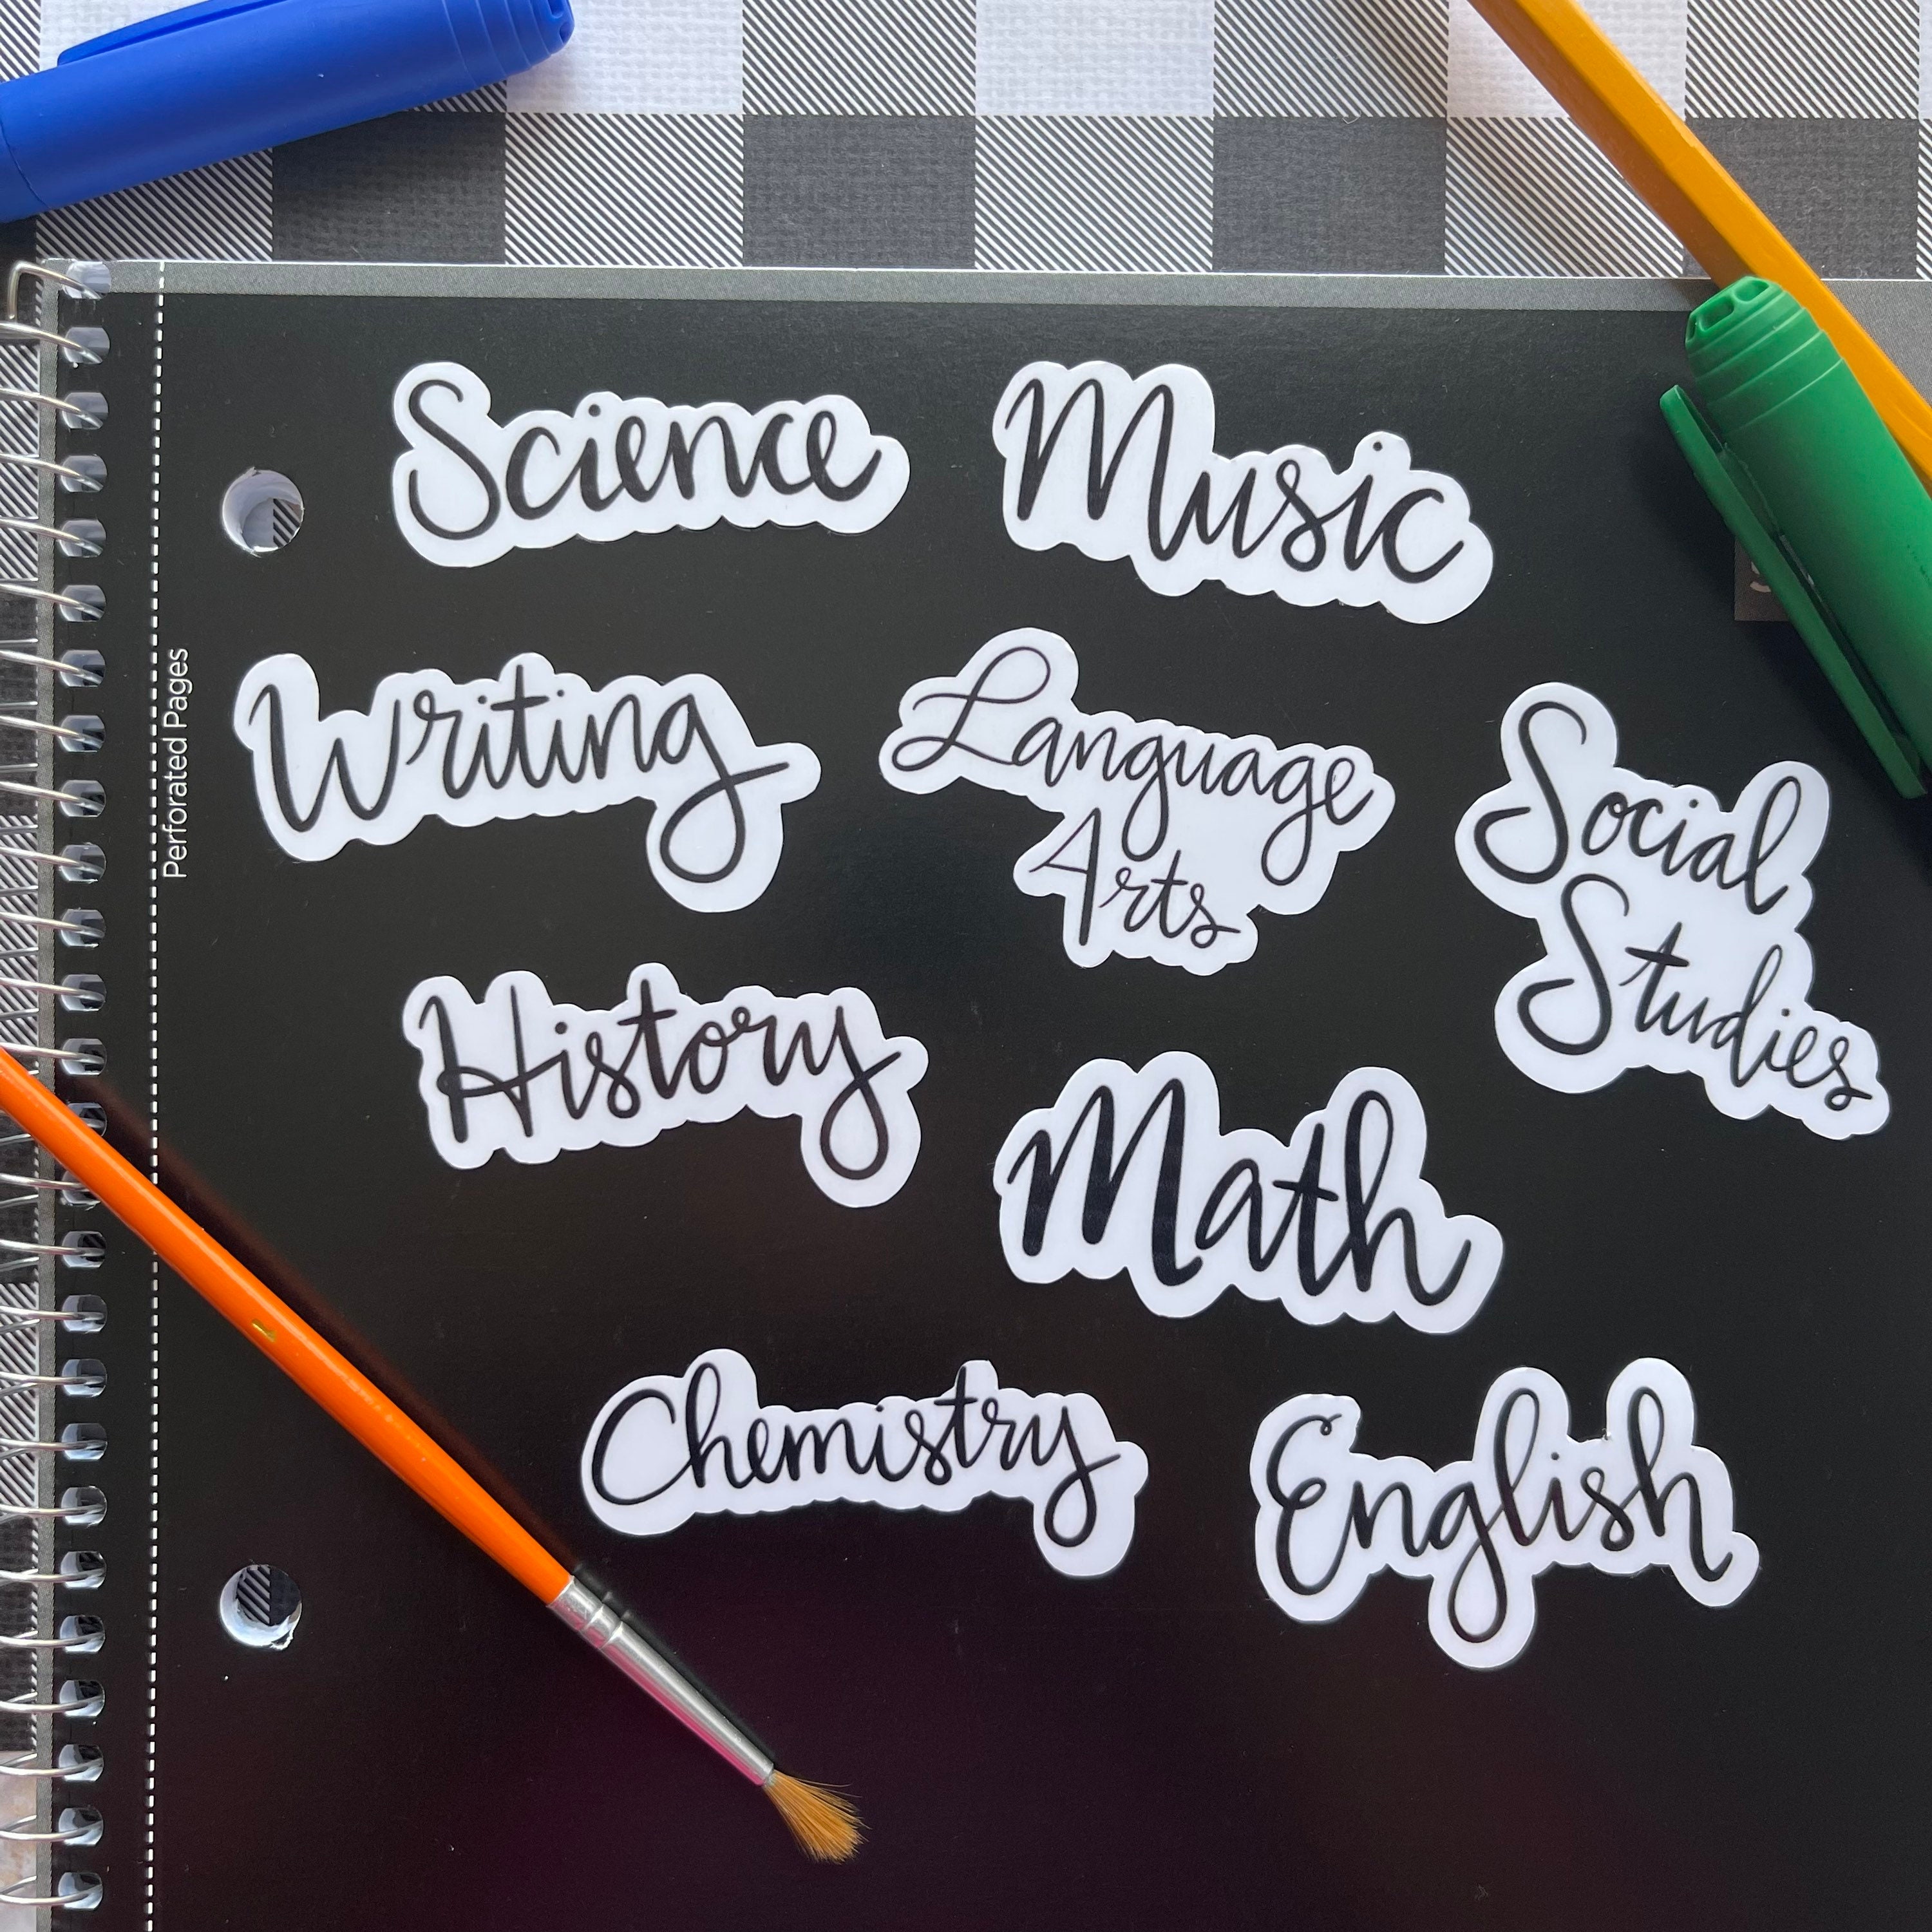 Science
Music
Perforated Pages
Writing
Language
Arts
Social
Studies
History
Math
Chemistry
English